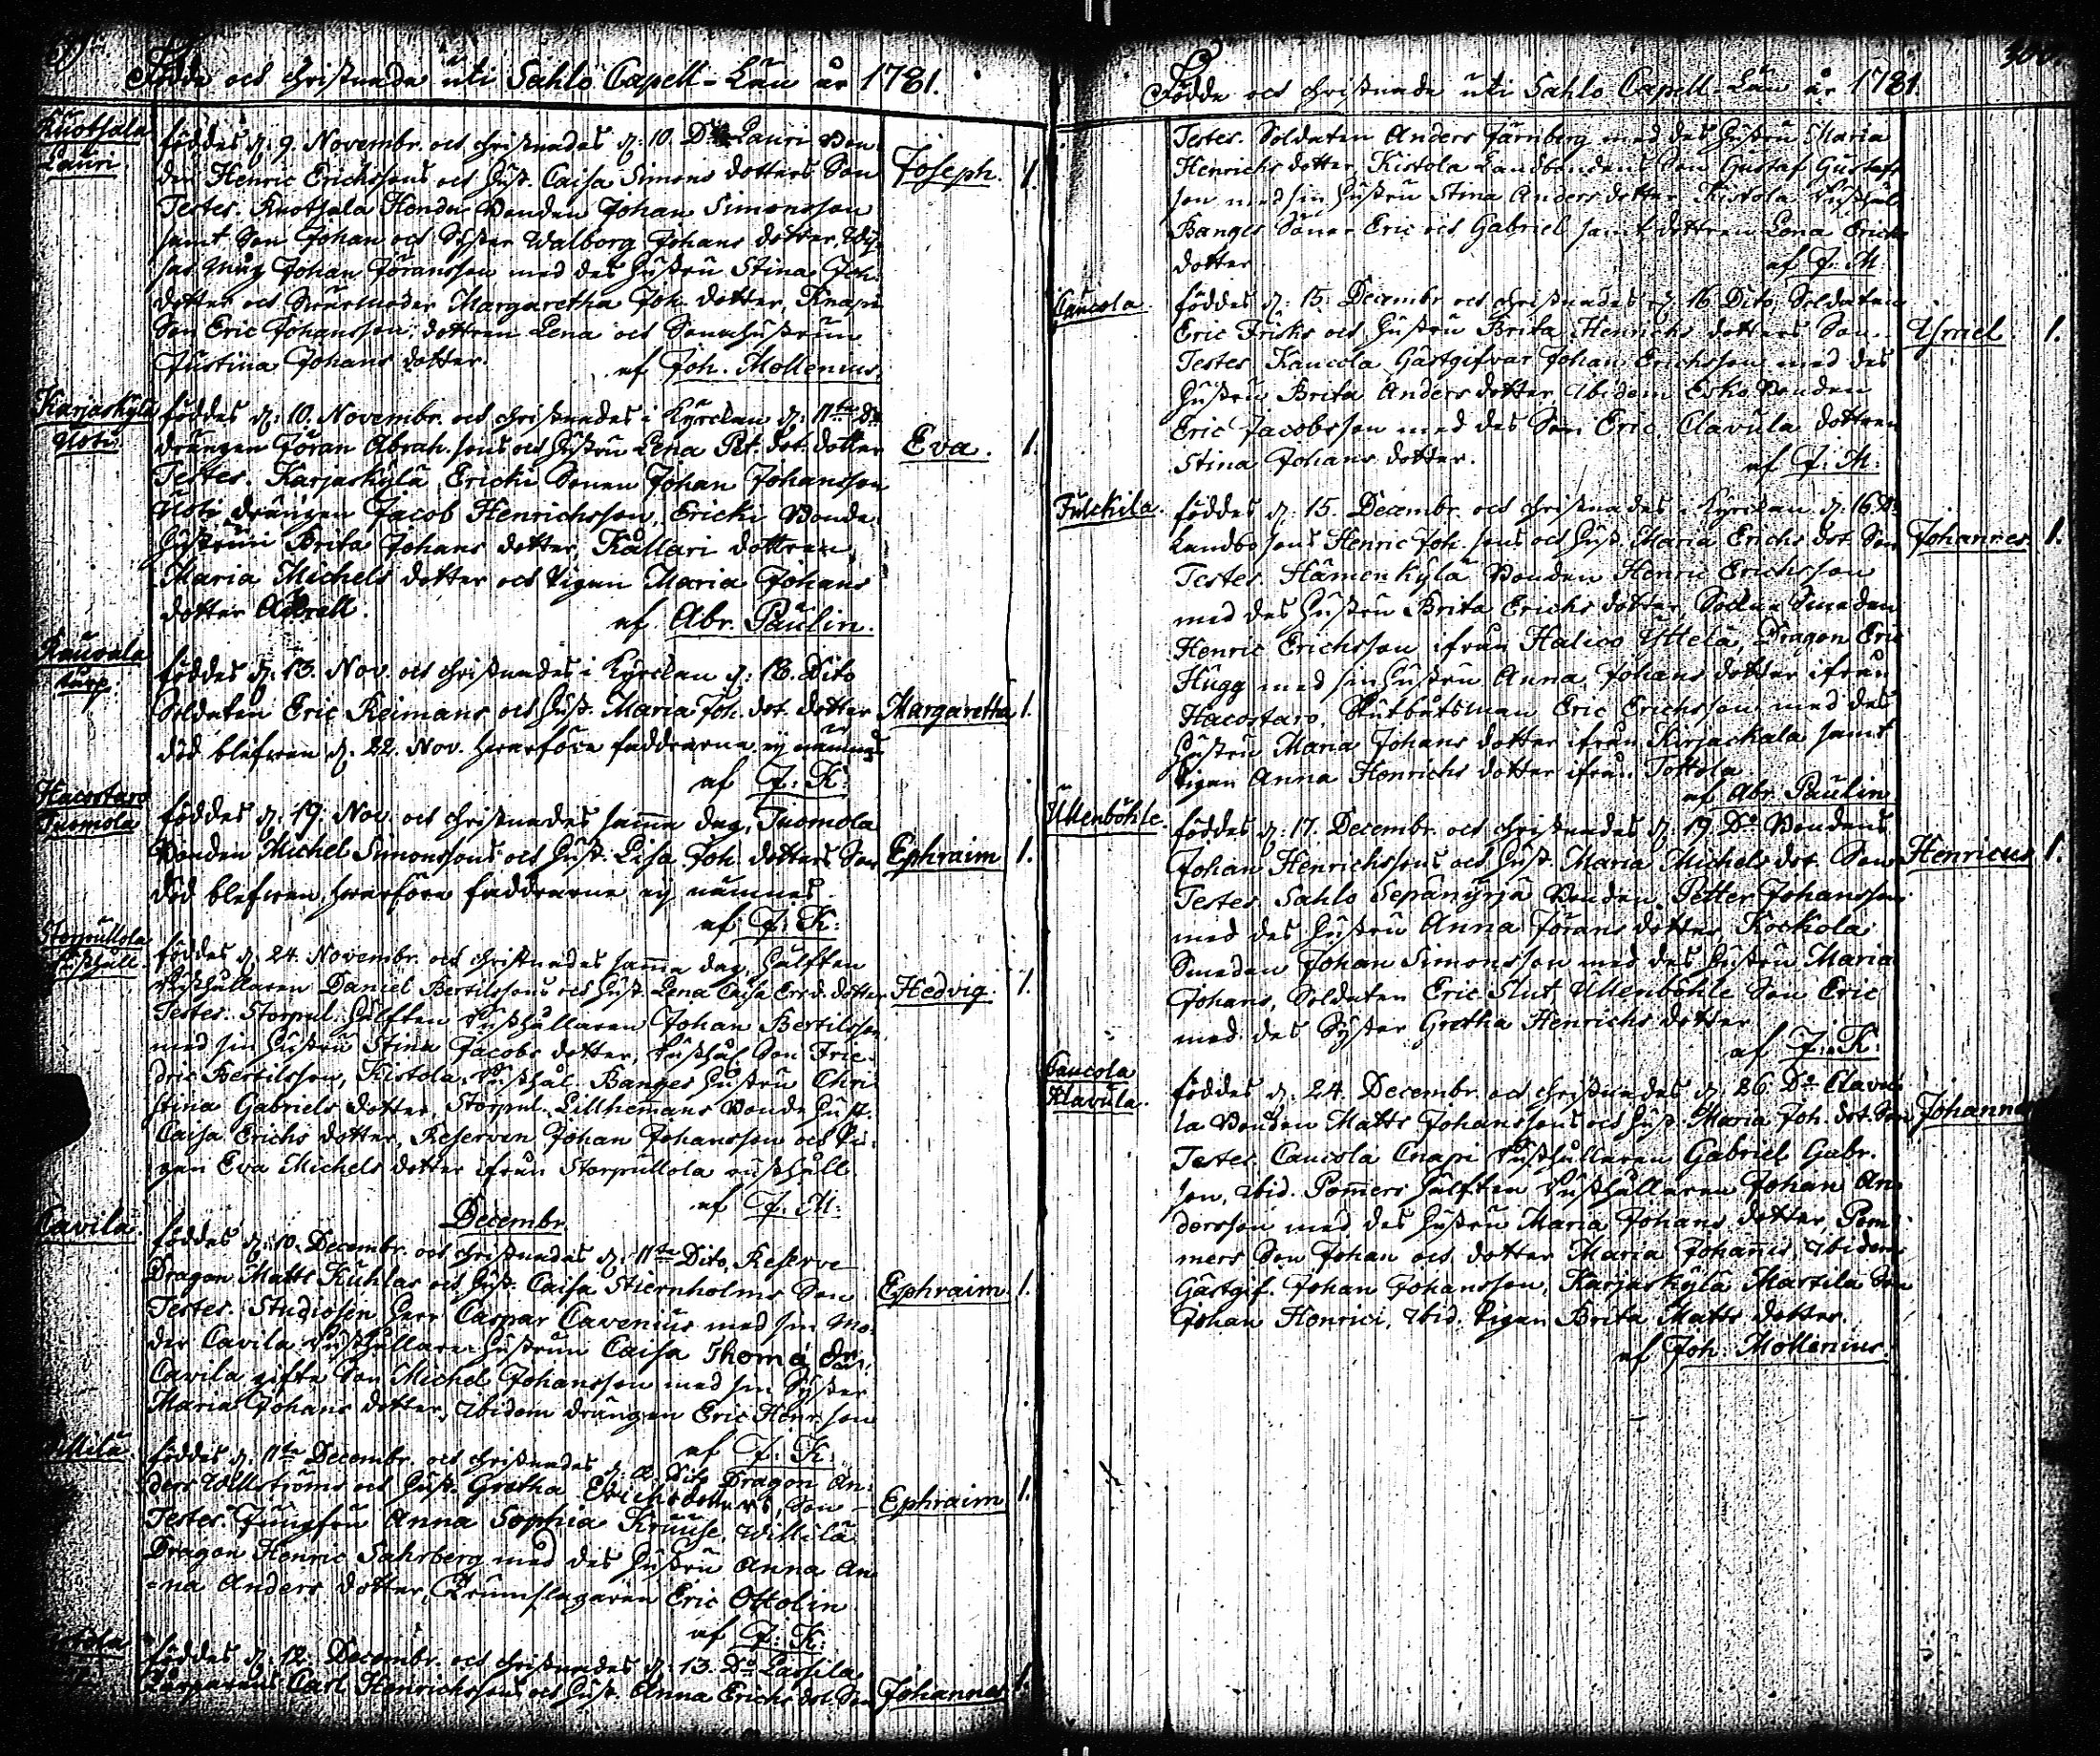 Födde och christnade uti Sahlo Capell-Län år 1781.
Kuotsala
Lauri.
föddes d: 9. Novembr. och christnades d: 10. Do Lauri Bon-
den Henric Erichssons och Hust. Caisa Simons dotters Son
Joseph. 1.
Testes. Kuotsala Bonden Johan Simonsson
samt Son Johan och Syster Walborg Johans dotter,
Johan Joransson med des Hustru Stina Joh.
dotter och Swärmoder Margaretha Joh. dotter, Knapi
Son Eric Johansson dottren Lena och Sonahustrun
Justina Johans dotter.
af Joh. Mollenius.
Karjaskylä
Uoti
föddes d: 10. Novembr. och christnades i Kyrckan d: 11te Do
drängen Jöran Abrah.sons och Hustru Lena Pet. dot. dotter
Eva. 1.
Testes. Karjaskylä Ericki Sonen Johan Johansson
Uoti drängen Jacob Henrichsson, Ericki Bonde
hustrun Brita Johans dotter, Källari dottren
Maria Michels dotter och Pigan Maria Johans
dotter
af Abr. Paulin.
Kauvala
torp.
föddes d: 13. Nov. och christnades i Kyrckan d: 18. Dito
Soldaten Eric Reimans och Hust. Maria Joh. dot. dotter
Margaretha 1.
död blefwen d. 22. Nov. hwarföre faddrarne ej nämnas
af J: K:
Hacostaro
Tuomola
föddes d: 19. Nov. och christnades samma dag, Tuomola
Bonden Michel Simonssons och Hust. Lisa Joh. dotters Son
Ephraim 1.
död blefwen, hwarföre faddrarne ej nämnes
af J: K:
Storpullola
rusthåll.
föddes d: 24. Novembr. och christnades samma dag, hälften
Rusthållaren Daniel Bertilssons och Hust. Lena Caisa dotter
Hedvig. 1.
Testes. Storpul. hälften Rusthållaren Johan Bertilsson
med sin hustru Stina Jacobs dotter, Rusthål. Son Frie-
dric Bertilsson, Kistola Rusthål. Banges Hustru Chri-
stina Gabriels dotter, Storpul. Lillhemmans Bonde Hust.
Caisa Erichs dotter, Reserven Johan Johansson och Pi-
gan Eva Michels dotter ifrån Storpullola rusthåll.
af J: M:
Decembr.
Cavila.
föddes d: 10. Decembr. och christnades d: 11te Dito, Reserve
Dragon Matts Kuhlas och Hust. Caisa Stiernholms Son
Ephraim 1.
Testes. Studiosen Herr Caspar Cavenius med sin Mo-
der Cavila Rusthållare Hustrun Caisa Thomæ dr.
Cavila gifte Son Michel Johansson med sin Syster
Maria Johans dotter, Ibidem drängen Eric Henr.son
af J: K:
föddes d: 11te Decembr. och christnades d: Dito Dragon An-
ders Willströms och Hust. Gretha Erichsdotters, Son
Ephraim 1.
Testes. Jungfru Anna Sophia Kruuse, Willilä
Dragon Henric Sahrberg med des Hustru Anna An-
na Anders dotter, Trumslagaren Eric Ottolin
af J: K:
föddes d: 12. Decembr. och christnades d: 13. Do Lassila
Carl Henrichssons och Hust. Anna Erichs dot. Son
Johannes 1.
Födde och christnade uti Sahlo Capell-Län år 1781.
Testes. Soldaten Anders Järnberg med des Hustru Maria
Henrichs dotter, Kistola Landbondens Son Gustaf Gustafs-
son med sin Hustru Stina Anders dotter, Kistola Rusthål.
Banges Söner Eric och Gabriel samt dottren Lena Erichs
dotter.
af J: M:
Caucola.
föddes d: 15. Decembr. och christnades d: 16 Dito, Soldaten
Eric Frisks och Hustru Brita Henrichs dotters Son
1.
Testes. Kaucola Gästgifvar Johan Erichsson med des
Hustru Brita Anders dotter, Ibidem Esko Bonden
Eric Jacobsson med des Son Eric, Clavula dottren
Stina Johans dotter.
af J: M:
Fulckila.
föddes d: 15. Decembr. och christnades i Kyrckan d: 16. Do
Landbosons Henric Joh. sons och Hust. Maria Erichs dot. Son
Johannes 1.
Testes. Hämenkylä Bonden Henric Erichsson
med des Hustru Brita Erichs dotter, Sockne Smeden
Henric Erichsson ifrån Halico Yttelä, Dragon Eric
Hugg med sin Hustru Anna Johans dotter ifrån
Hacostaro, Eric Erichsson med des
Hustru Maria Johans dotter ifrån Kirjackala samt
Pigan Anna Henrichs dotter ifrån Tottola
af Abr. Paulin
Ullenböhle
föddes d: 17. Decembr. och christnades d: 19. Do Bondens
Johan Henrichssons och Hust. Maria Michels dot. Son
Henricus 1.
Testes. Sahlo Sepänyrjä Bonden Petter Johansson
med des Hustru Anna Jörans dotter, Kockola
Smeden Johan Simonsson med des Hustru Maria
Johans, Soldaten Eric Slut, Ullenböhle Son Eric
med des Syster Gretha Henrichs dotter
af J: K:
Caucola
Klavula.
föddes d: 24. Decembr. och christnades d: 26. Do Clavu-
la Bonden Matts Johanssons och Hust. Maria Joh. dot. Son
Testes. Caucola Cnapi Rusthållaren Gabriel Gabr.
son, Ibid. Pommers hälften Rusthållaren Johan An-
dersson med des Hustru Maria Johans dotter, Pom-
mers Son Johan och dotter Maria Johannis, Ibidem
Gästgif. Johan Johansson, Karjaskylä Martila Son
Johan Henrici, Ibid. Pigan Brita Matts dotter.
af Joh: Mollenius.